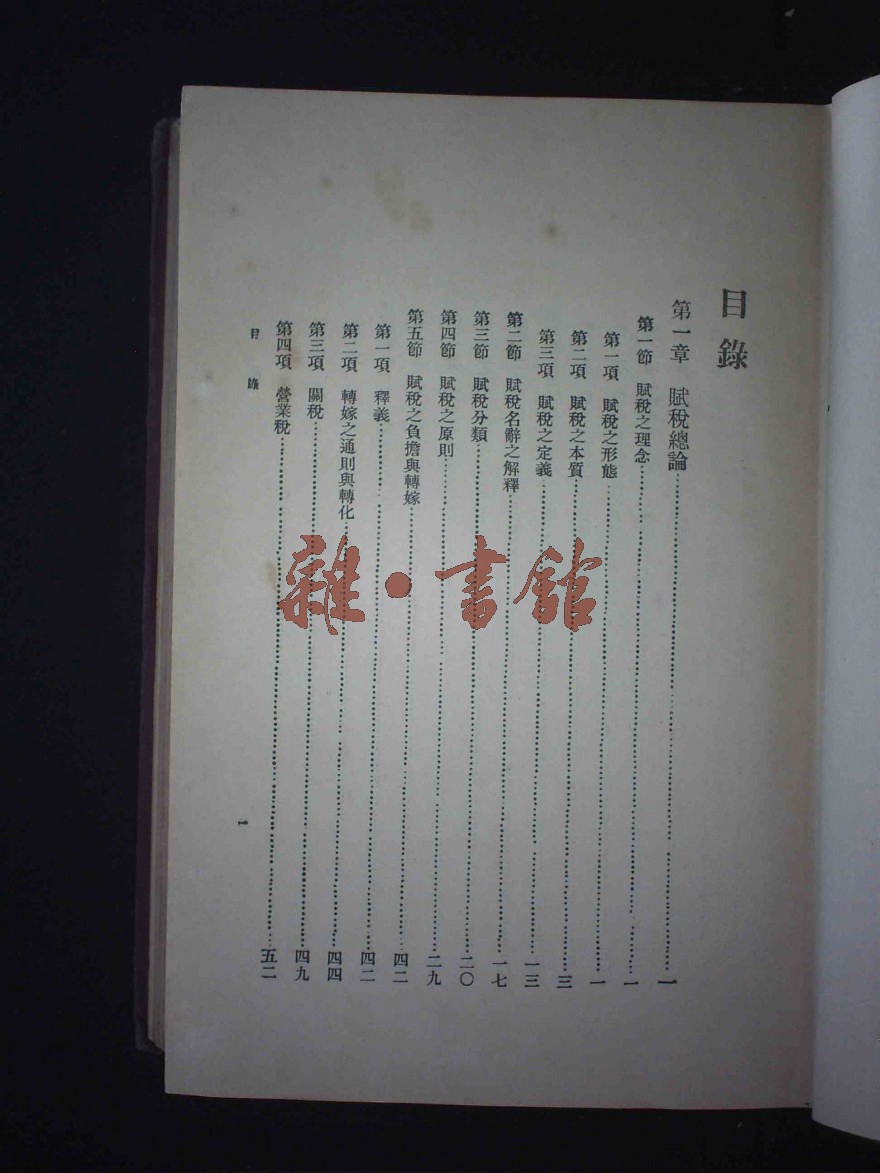 目錄
第一章 賦稅總論……一
第一節 賦稅之理念……一
第一項 賦稅之形態……一
第二項 賦稅之本質……三
第三項 賦稅之定義……一三
第二節 賦稅名辭之解釋……一七
第三節 賦稅分類……二〇
第四節 賦稅之原則……二九
第五節 賦稅之負擔與轉嫁……四二
第一項 釋義……四二
第二項 轉嫁之通則與轉化……四四
第三項 關稅……四九
第四項 營業稅……五二
目錄
一
雜·書館